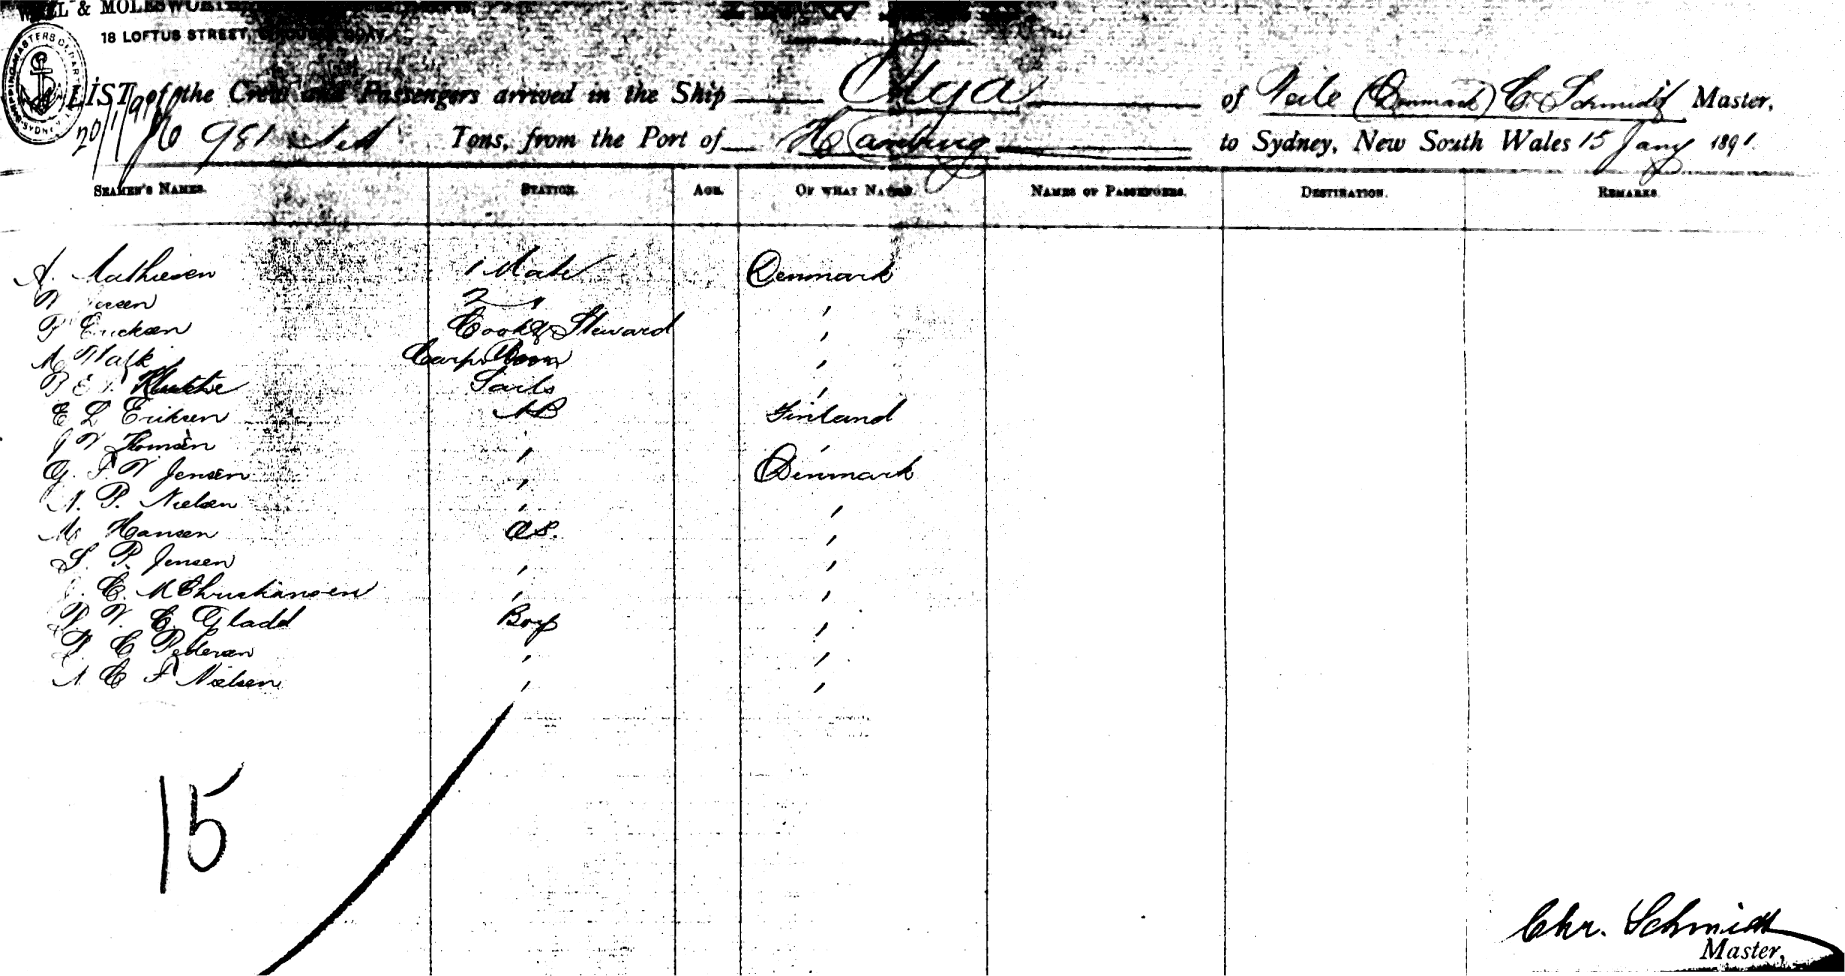 & MOLESWORTH
18 LOFTUS STREET,
LIST of the Crew and Passengers arrived in the Ship Olga of Veile (Denmark) C. Schmidt Master,
20/1/91 981 Tons, from the Port of Hamburg to Sydney, New South Wales 15 Jany 1891.
SEAMEN'S NAMES. STATION. AGE. OF WHAT NATION. NAMES OF PASSENGERS. DESTINATION. REMARKS.
A. Mathiesen 1 Mate Denmark
2 "
Ericksen Cook & Steward "
Carp "
Sails "
E L Eriksen AB Finland
J V Thomsen " "
G. F. V Jensen " Denmark
N. P. Nielsen " "
M Hansen OS. "
S. P. Jensen " "
C. M Christiansen " "
V. C. Gladd Boy "
P C Petersen " "
A C F Nielsen " "
15
Chr. Schmidt
Master,